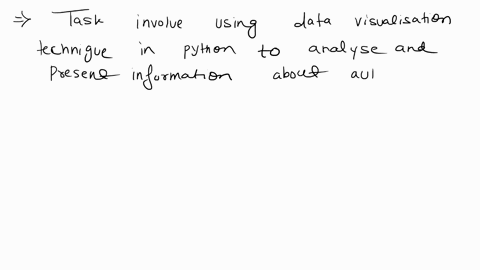 ⇒ Task involve using data visualisation
technique in python to analyse and
Present information about aul